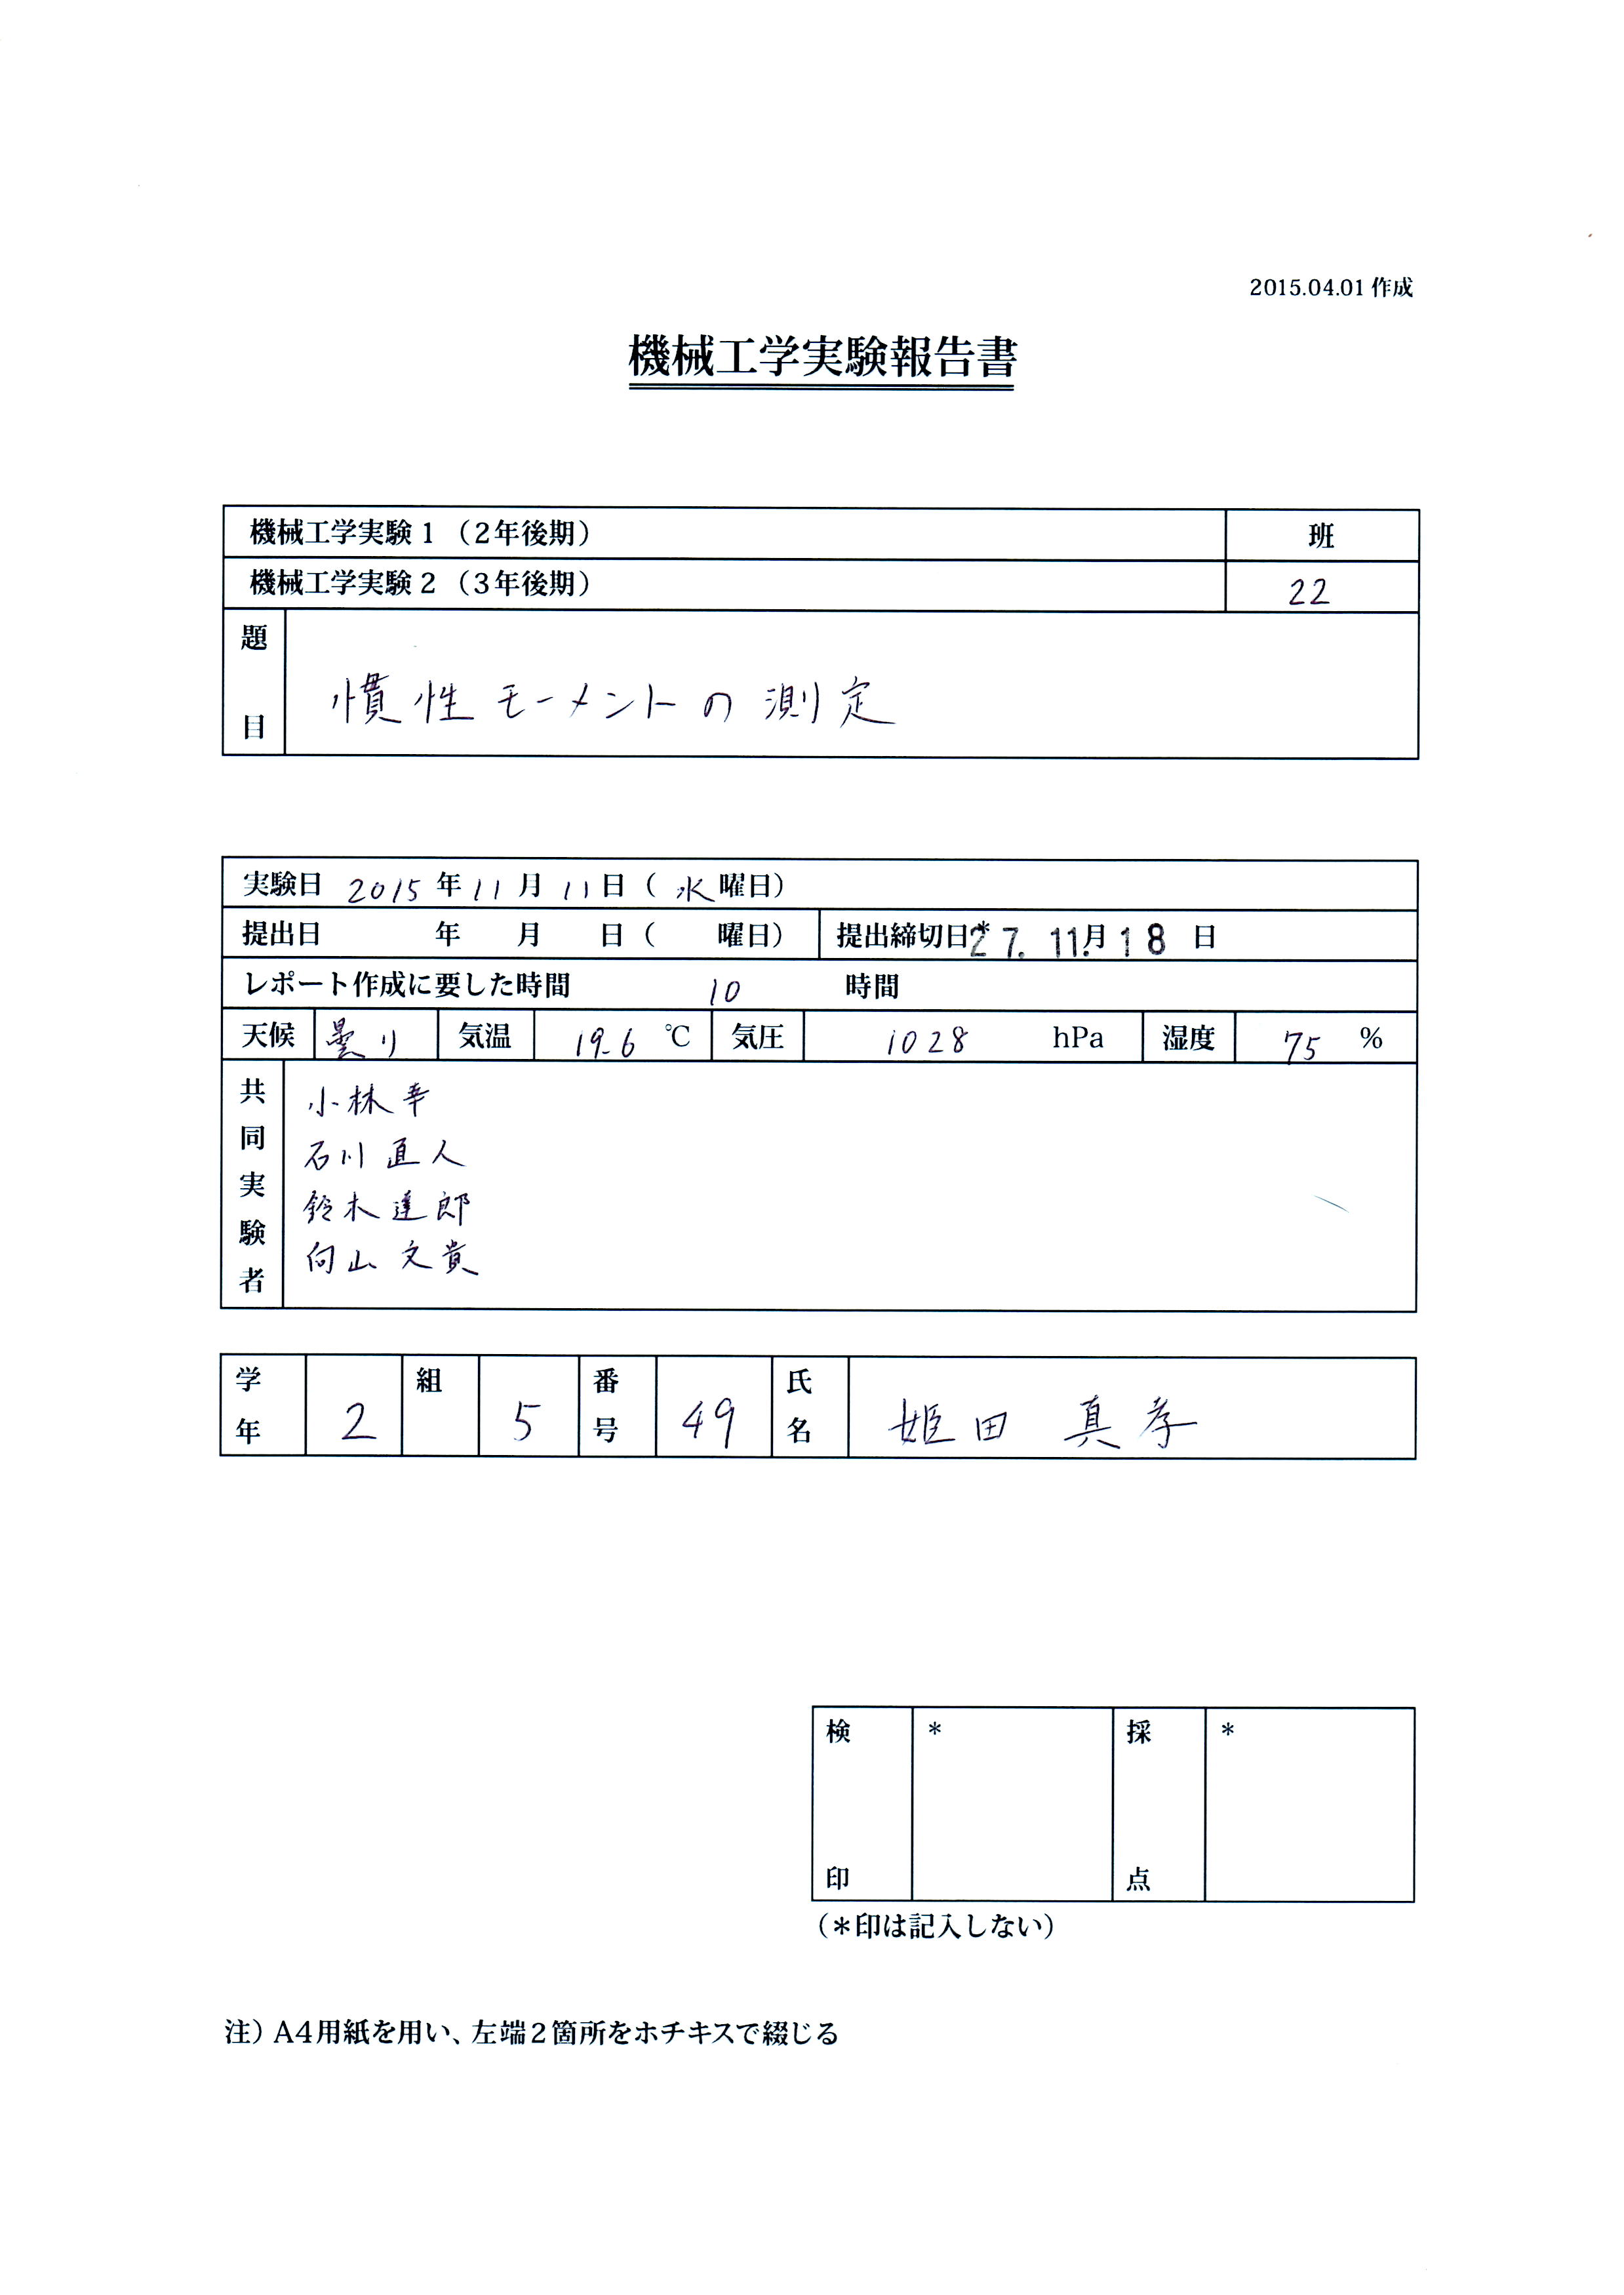 2015.04.01 作成
機械工学実験報告書
機械工学実験1（2年後期） 班
機械工学実験2（3年後期） 22
題目 慣性モーメントの測定
実験日 2015 年 11 月 11 日（水曜日）
提出日 年 月 日（ 曜日） 提出締切日* 27. 11.月 18 日
レポート作成に要した時間 10 時間
天候 曇り 気温 19.6 ℃ 気圧 1028 hPa 湿度 75 %
共同実験者 小林幸
石川直人
鈴木達郎
向山文貴
学年 2 組 5 番号 49 氏名 姫田 真孝
検印 * 採点 *
（*印は記入しない）
注）A4用紙を用い、左端2箇所をホチキスで綴じる